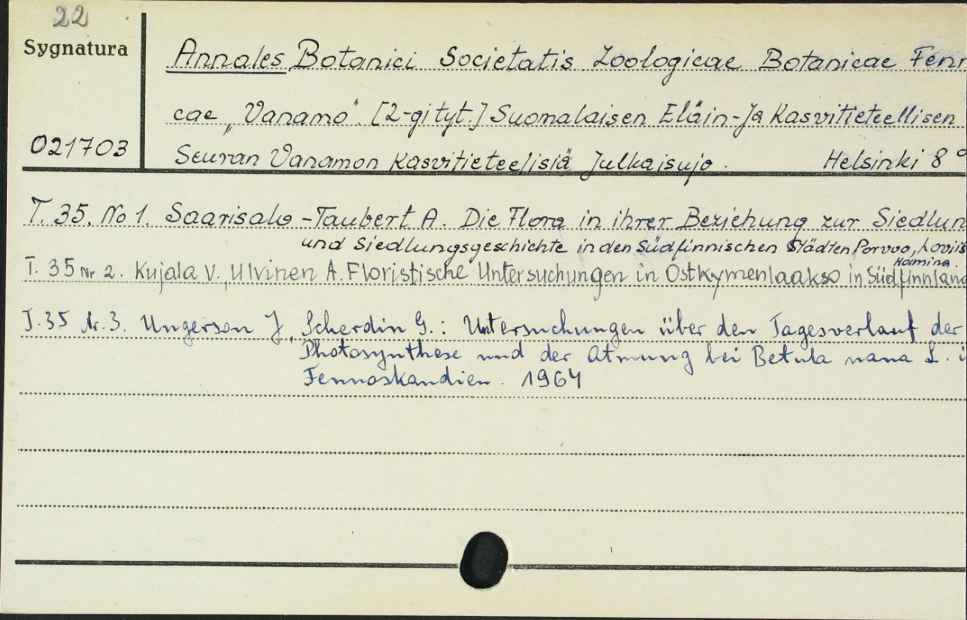 22
Sygnatura
021703
Annales Botanici Societatis Zoologicae Botanicae Fenni
cae „Vanamo". [2-gi tyt.] Suomalaisen Eläin-Ja Kasvitieteellisen
Seuran Vanamon Kasvitieteelisiä Julkaisujo. Helsinki 8°
T. 35. No 1. Saarisalo-Taubert A. Die Flora in ihrer Beziehung zur Siedlun
und Siedlungsgeschichte in den Südfinnischen Städten Porvoo, Lovis
Hamina.
T. 35 Nr 2. Kujala V., Ulvinen A. Floristische Untersuchungen in Ostkymenlaakso in Südfinnland
T. 35 Nr. 3. Ungerson J, Scherdin G.: Untersuchungen über den Tagesverlauf der
Photosynthese und der Atmung bei Betula nana L. i
Fennoskandien. 1964